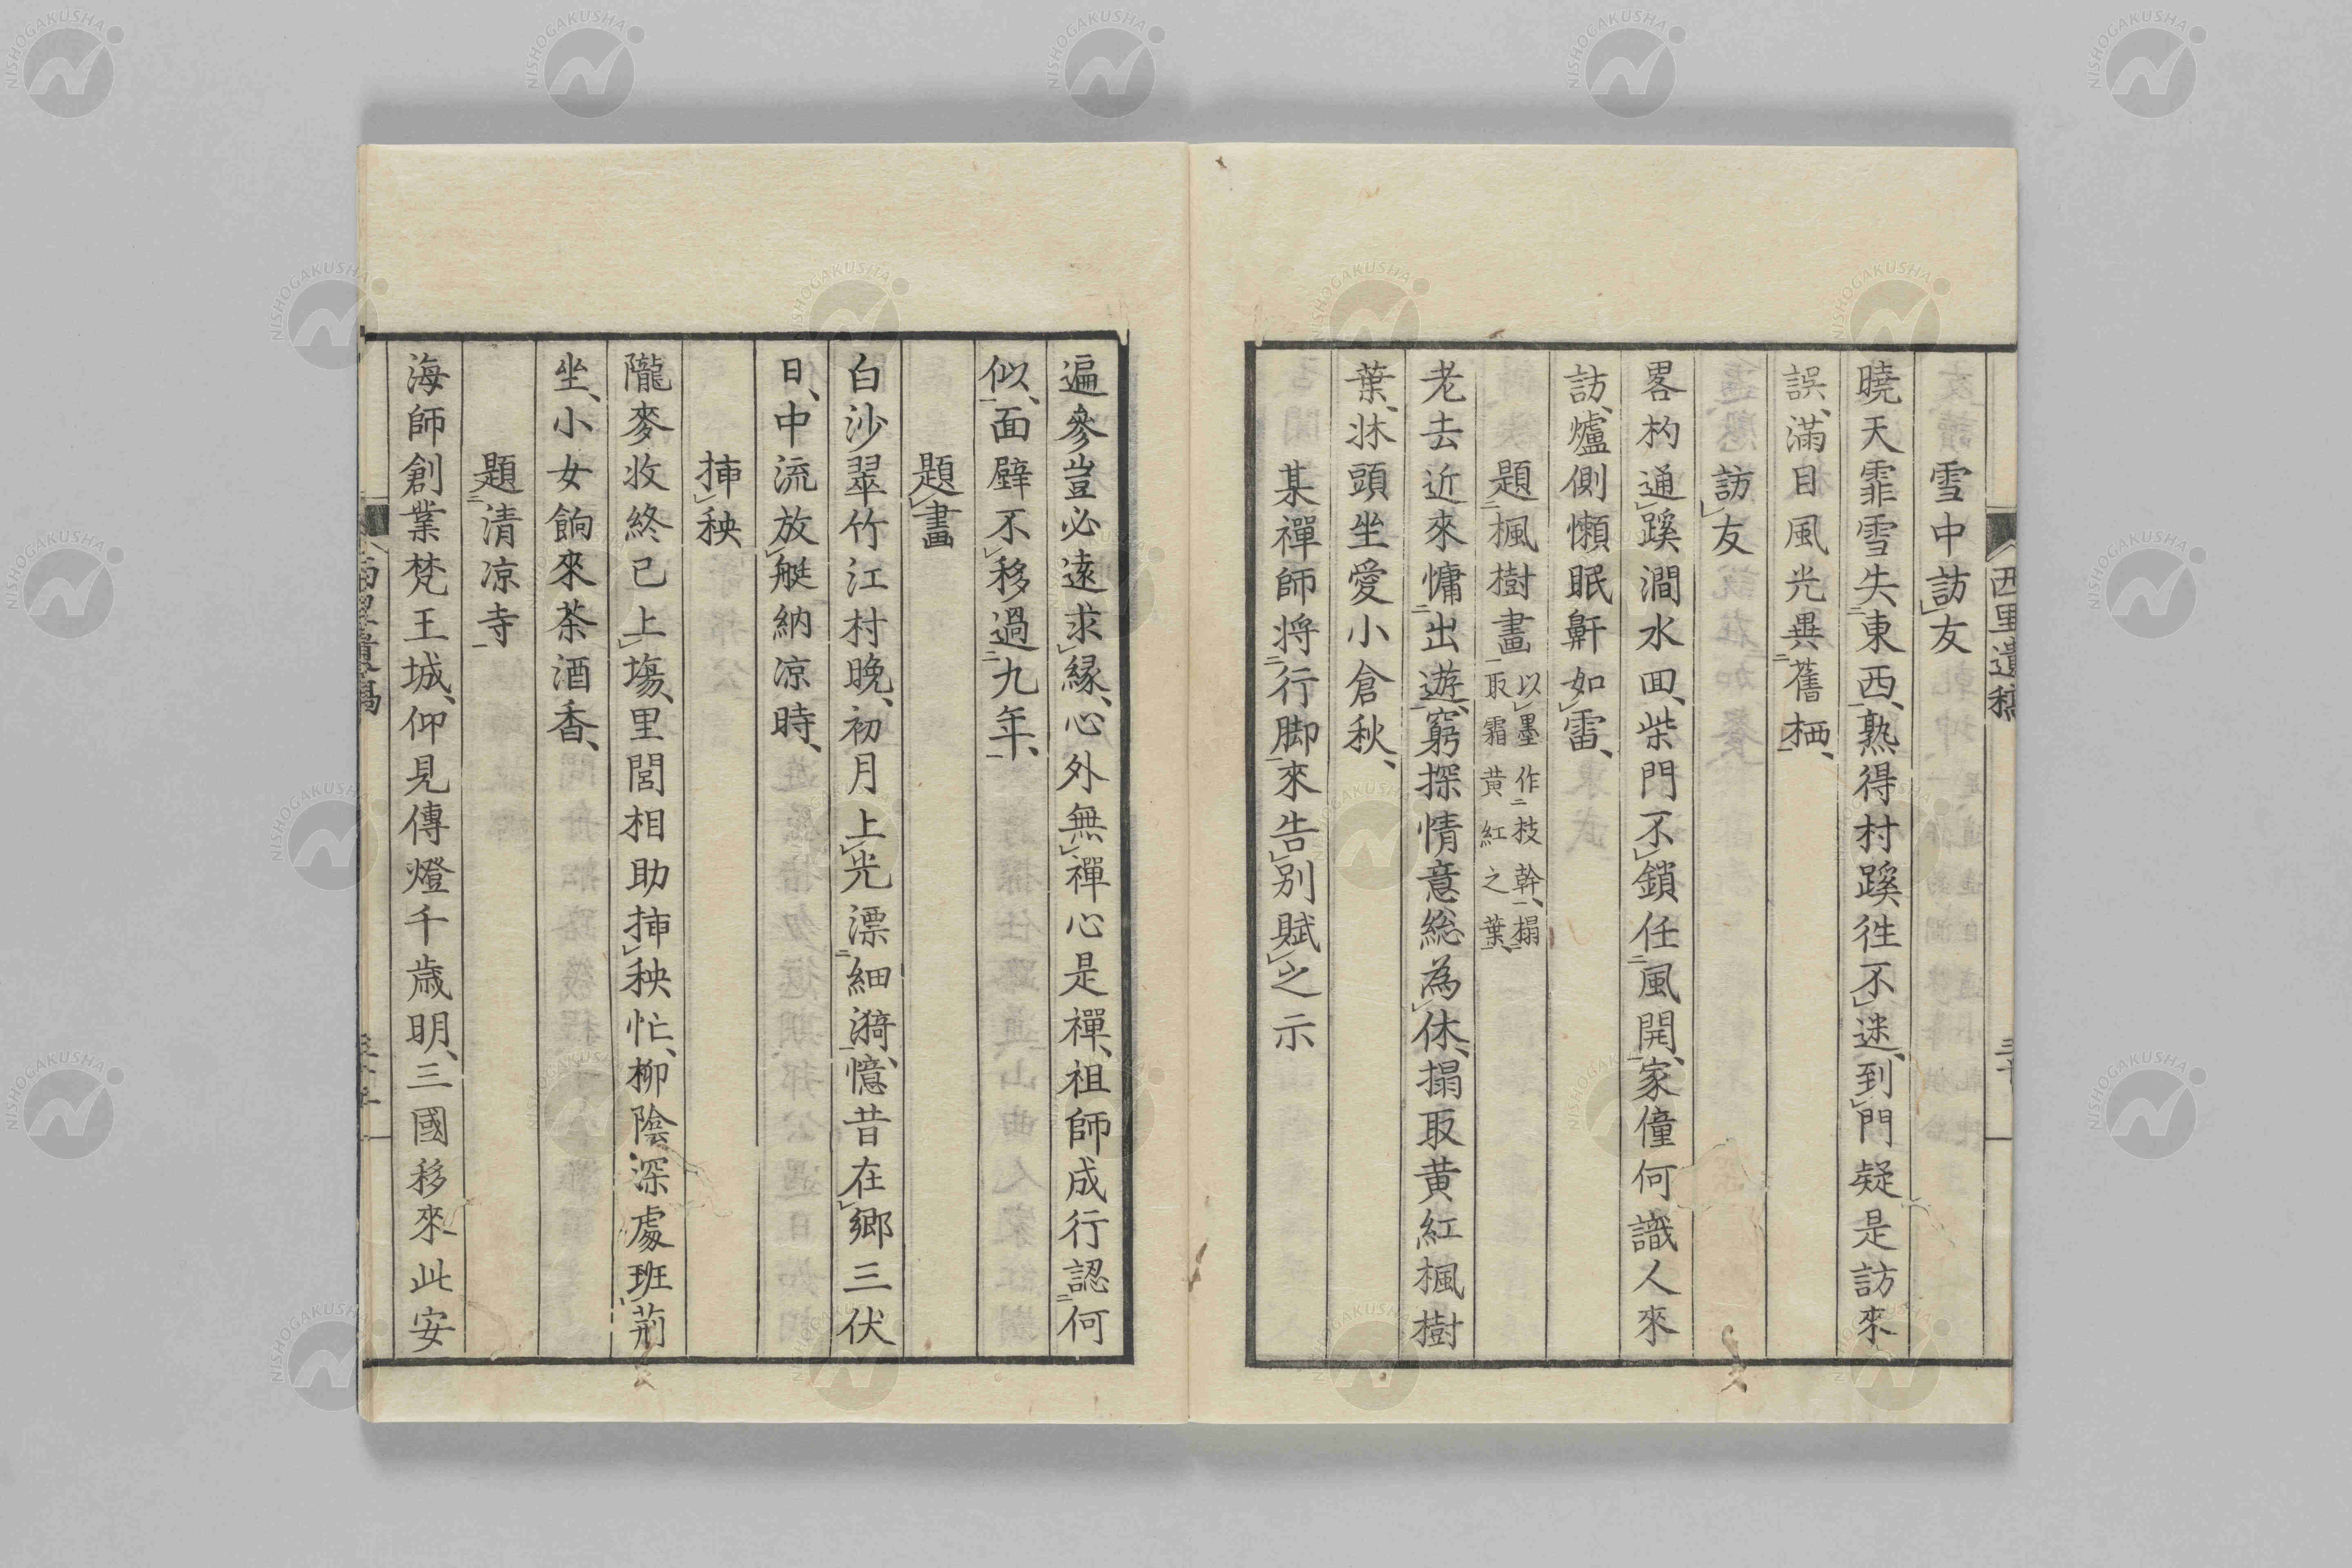 西里遺稿
雪中訪友
曉天霏雪失東西、熟得村蹊徃不迷、到門疑是訪來
誤、滿目風光異舊栖、
訪友
畧杓通蹊澗水回、柴門不鎖任風開、家僮何識人來
訪、爐側懶眠鼾如雷、
題楓樹畫以墨作技幹、搨
取霜黄紅之葉、
老去近來慵出遊、窮探情意総為休、搨取黄紅楓樹
葉、牀頭坐愛小倉秋、
某禪師将行脚來告別賦之示
遍參豈必遠求縁、心外無禪心是禪、祖師成行認何
似、面壁不移過九年、
題畫
白沙翠竹江村晩、初月上光漂細漪、憶昔在鄉三伏
日、中流放艇納凉時、
挿秧
隴麥收終已上塲、里閭相助挿秧忙、柳陰深處班荊
坐、小女餉來茶酒香、
題清凉寺
海師創業梵王城、仰見傳燈千歳明、三國移來此安
NISHOGAKUSHA